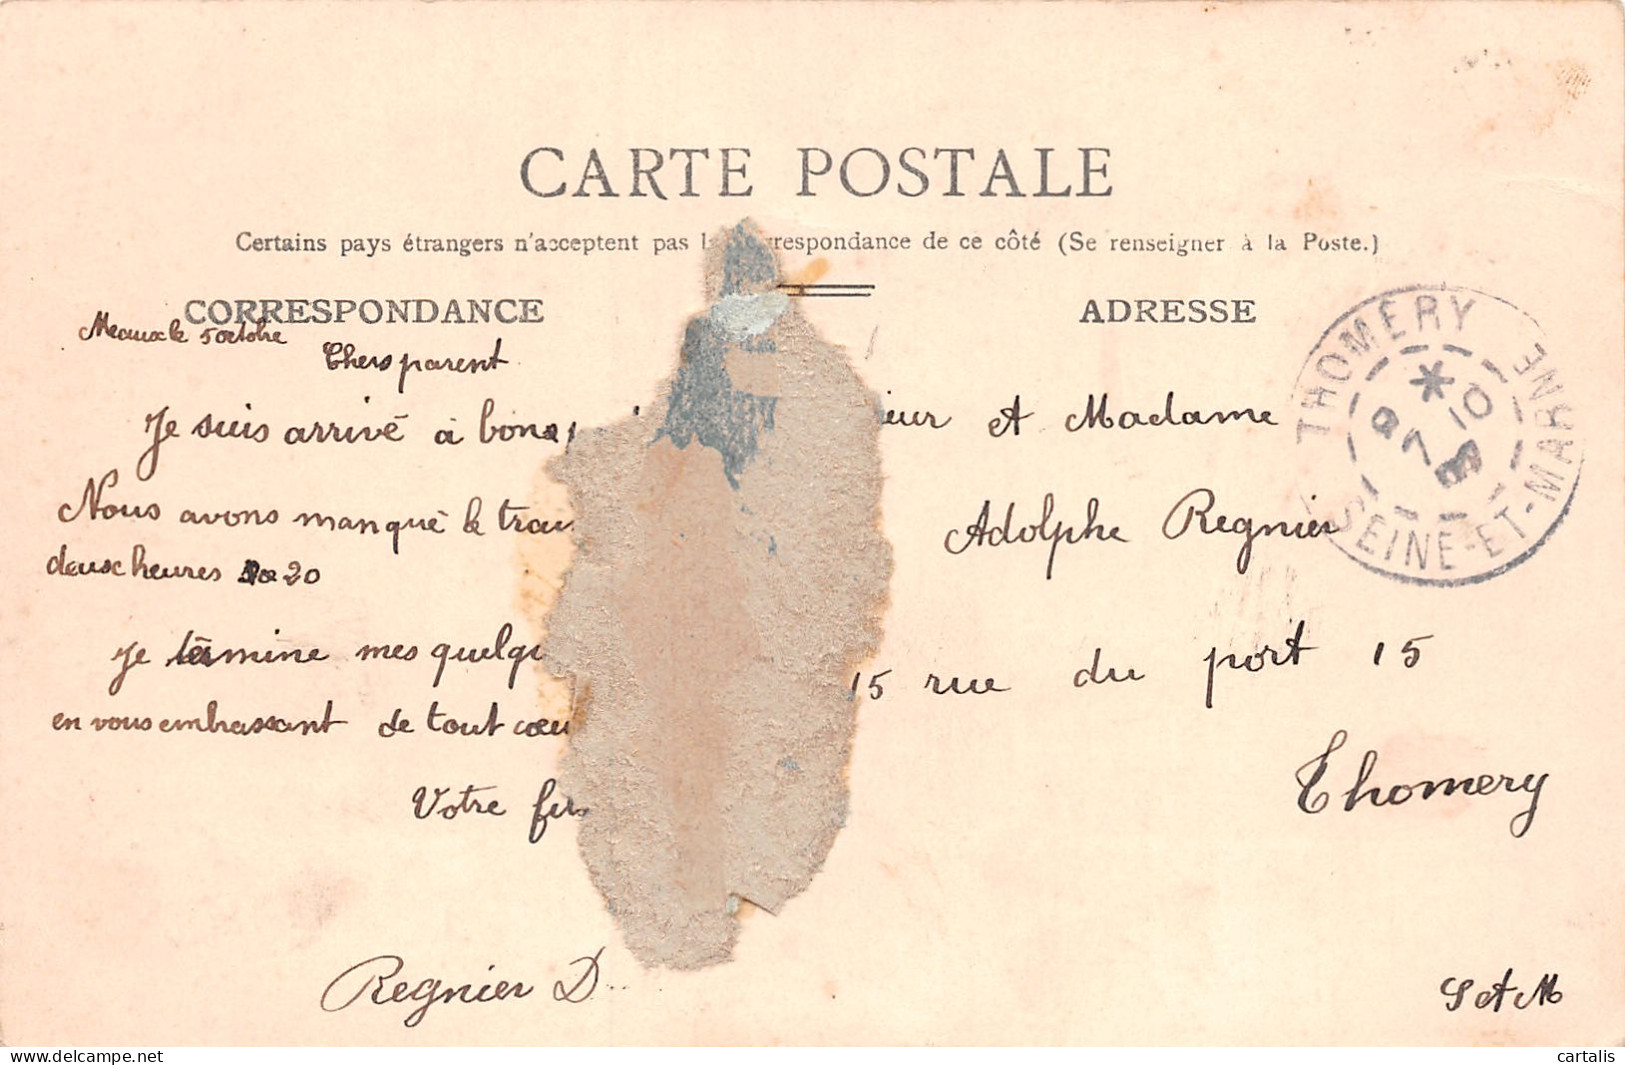 CARTE POSTALE
Certains pays étrangers n'acceptent pas la correspondance de ce côté (Se renseigner à la Poste.)
CORRESPONDANCE
Meaux le 5 octobre
Chers parent
Je suis arrivé à bon
Nous avons manqué le train
deux heures 20
Je termine mes quelqu
en vous embrassant de tout cœu
Votre
Regnier D
ADRESSE
ieur et Madame
Adolphe Regnier
15 rue du port 15
Thomery
S et M
THOMERY
SEINE-ET-MARNE
www.delcampe.net
cartalis